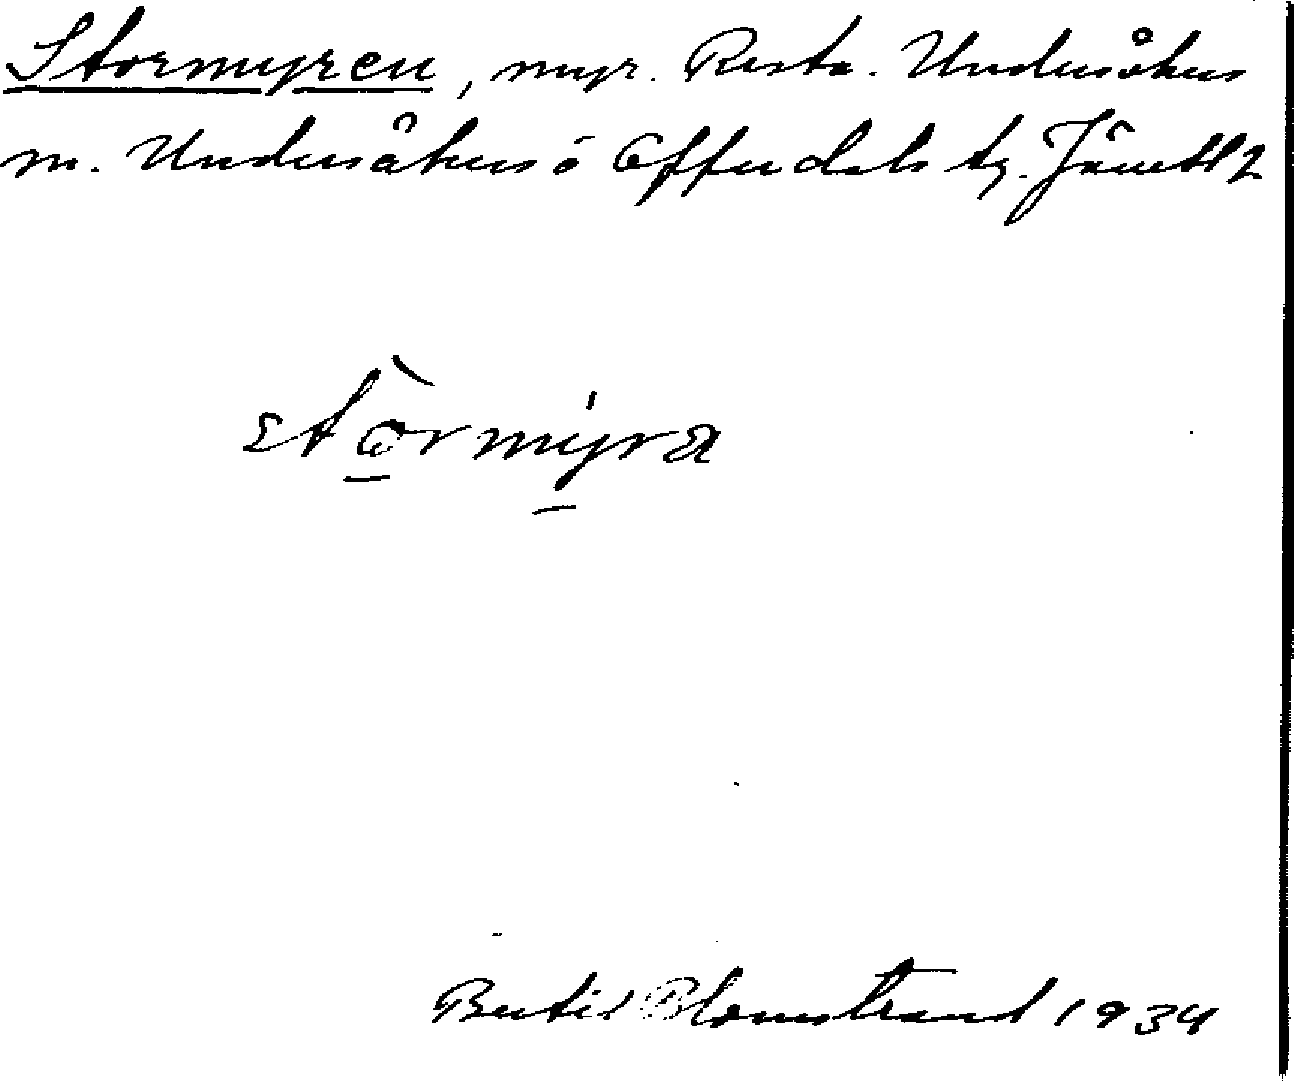 Stormyren, myr. Resta. Undersåkers
m. Undersåkers o Offerdals tg. Jämtl
stòrmýra
Bertil Blomstrand 1934